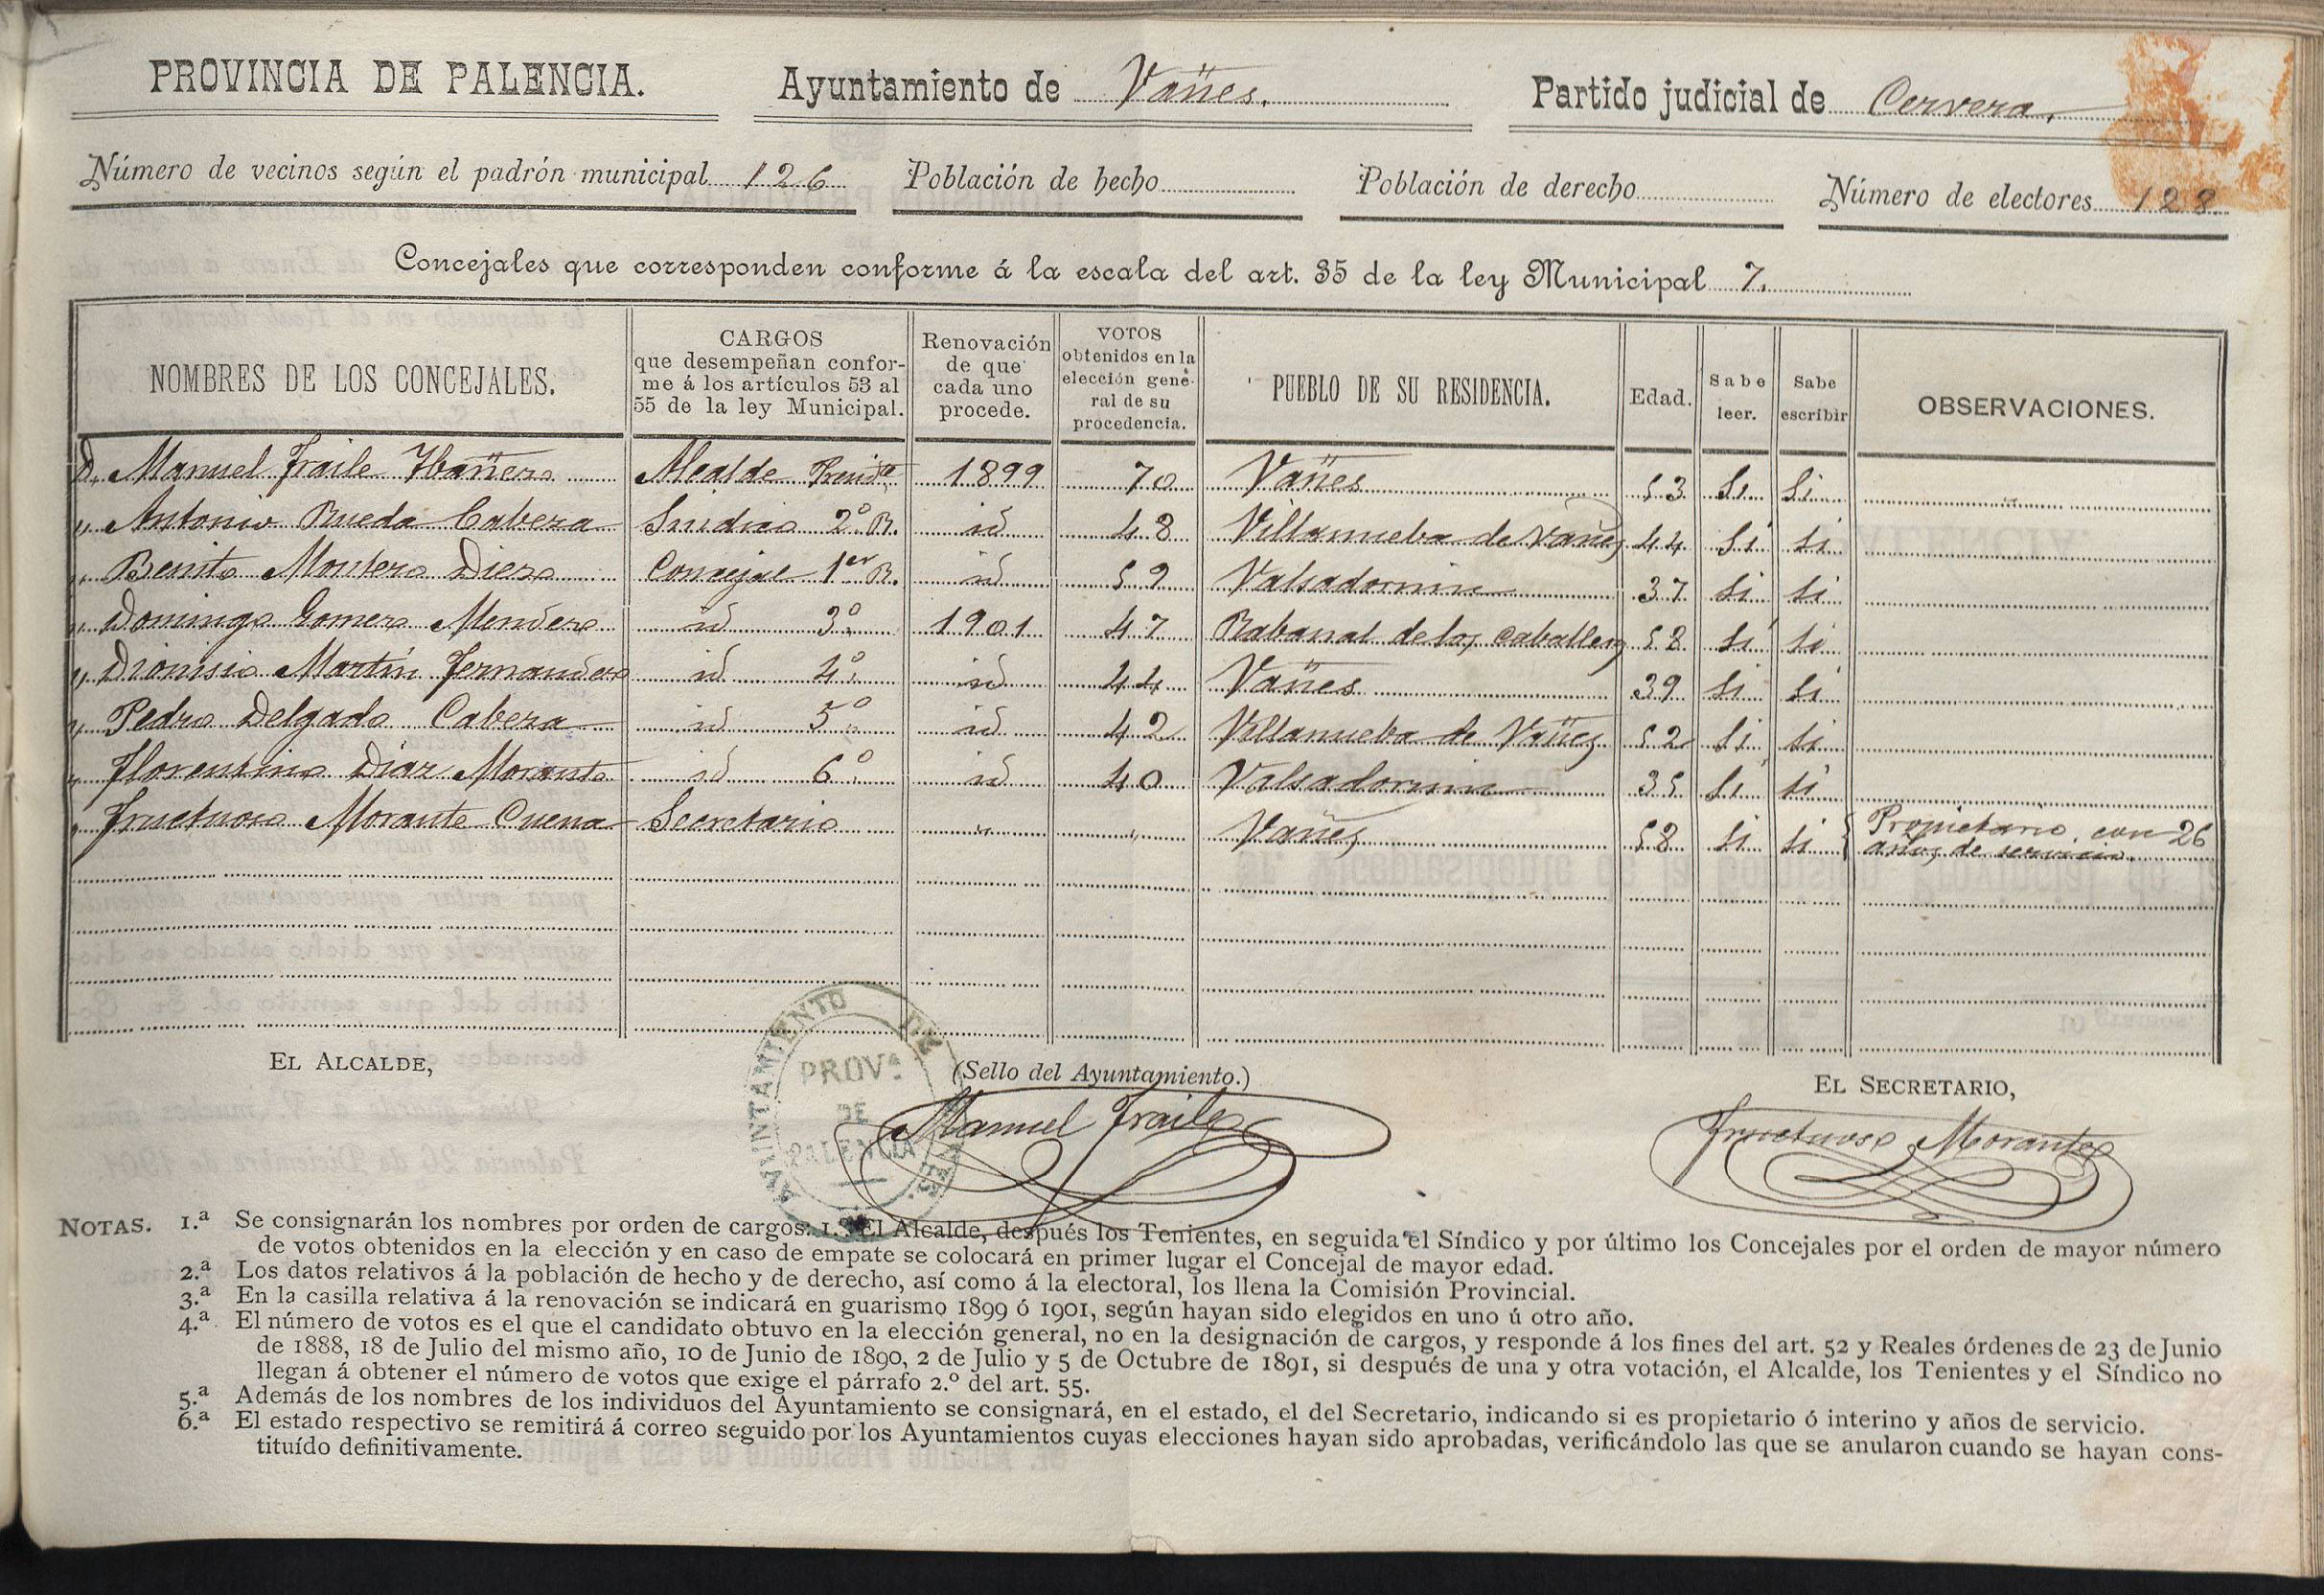 PROVINCIA DE PALENCIA. Ayuntamiento de Vañes. Partido judicial de Cervera.
Número de vecinos según el padrón municipal 126 Población de hecho Población de derecho Número de electores 128.
Concejales que corresponden conforme á la escala del art. 35 de la ley Municipal 7.
NOMBRES DE LOS CONCEJALES.
CARGOS
que desempeñan confor-
me á los artículos 53 al
55 de la ley Municipal.
Renovación
de que
cada uno
procede.
VOTOS
obtenidos en la
elección gene-
ral de su
procedencia.
PUEBLO DE SU RESIDENCIA.
Edad.
Sabe
leer.
Sabe
escribir
OBSERVACIONES.
D. Manuel Fraile Ybañez Alcalde Presidte 1899 70 Vañes 53 Si Si
" Antonio Rueda Cabeza Sindico 2º R. id 48 Villanueba de Vañes 44 Si si
" Benito Montero Diez Concejal 1er R. id 59 Valsadornin 37 si si
" Domingo Gomez Mendez id 3º 1901 47 Rabanal de los Caballeros 58 si si
" Dionisio Martín Fernandez id 4º id 44 Vañes 39 si si
" Pedro Delgado Cabeza id 5º id 42 Villanueba de Vañes 52 si si
" Florentino Diaz Morante id 6º id 40 Valsadornin 35 si si
" Fructuoso Morante Cuena Secretario " " Vañes 58 si si Propietario con 26
años de servicio.
EL ALCALDE, (Sello del Ayuntamiento.) EL SECRETARIO,
AYUNTAMIENTO DE VAÑES.
PROVª
DE
PALENCIA
Manuel Fraile
Fructuoso Morante
NOTAS. 1.ª Se consignarán los nombres por orden de cargos: 1.º El Alcalde, después los Tenientes, en seguida el Síndico y por último los Concejales por el orden de mayor número
de votos obtenidos en la elección y en caso de empate se colocará en primer lugar el Concejal de mayor edad.
2.ª Los datos relativos á la población de hecho y de derecho, así como á la electoral, los llena la Comisión Provincial.
3.ª En la casilla relativa á la renovación se indicará en guarismo 1899 ó 1901, según hayan sido elegidos en uno ú otro año.
4.ª El número de votos es el que el candidato obtuvo en la elección general, no en la designación de cargos, y responde á los fines del art. 52 y Reales órdenes de 23 de Junio
de 1888, 18 de Julio del mismo año, 10 de Junio de 1890, 2 de Julio y 5 de Octubre de 1891, si después de una y otra votación, el Alcalde, los Tenientes y el Síndico no
llegan á obtener el número de votos que exige el párrafo 2.º del art. 55.
5.ª Además de los nombres de los individuos del Ayuntamiento se consignará, en el estado, el del Secretario, indicando si es propietario ó interino y años de servicio.
6.ª El estado respectivo se remitirá á correo seguido por los Ayuntamientos cuyas elecciones hayan sido aprobadas, verificándolo las que se anularon cuando se hayan cons-
tituído definitivamente.